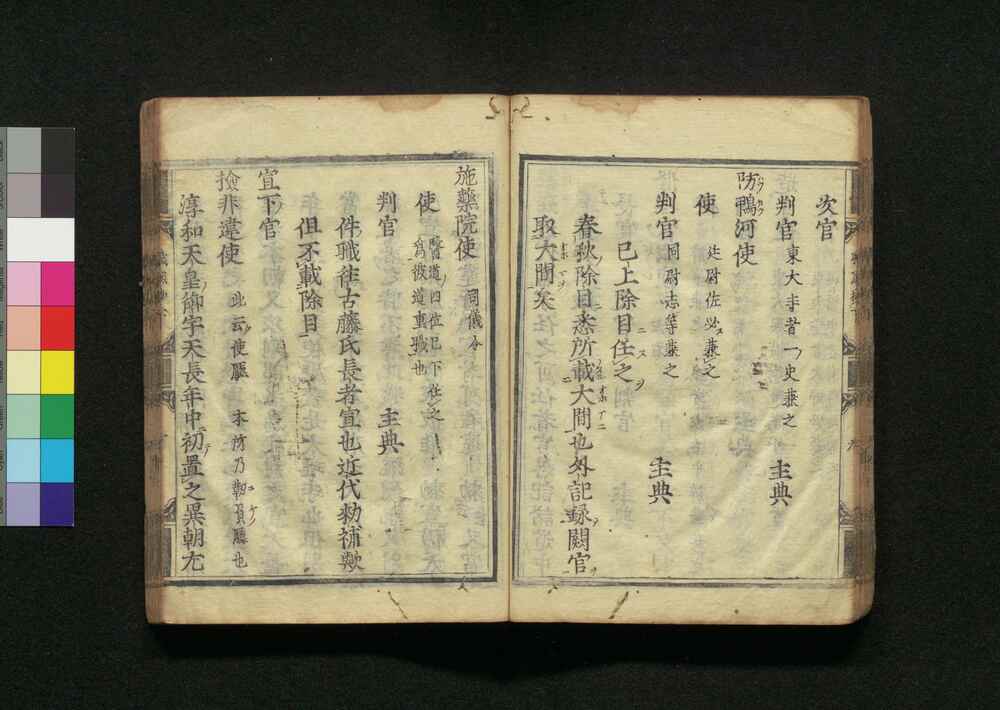 次官
判官 東大寺者一ノ史兼之 主典
防鴨河使
使 廷尉佐必兼之
判官 同尉志等兼之 主典
已上除目任之
春秋除目悉所載大間也外記録闕官
取大間矣
施藥院使 同儀令
使 醫道四位已下任之
爲彼道重職也
判官 主典
件職徃古藤氏長者宣也近代勅補歟
但不載除目
宣下官
撿非違使 此云使廳 本府乃靱負廳也
淳和天皇御宇天長年中初置之異朝尤